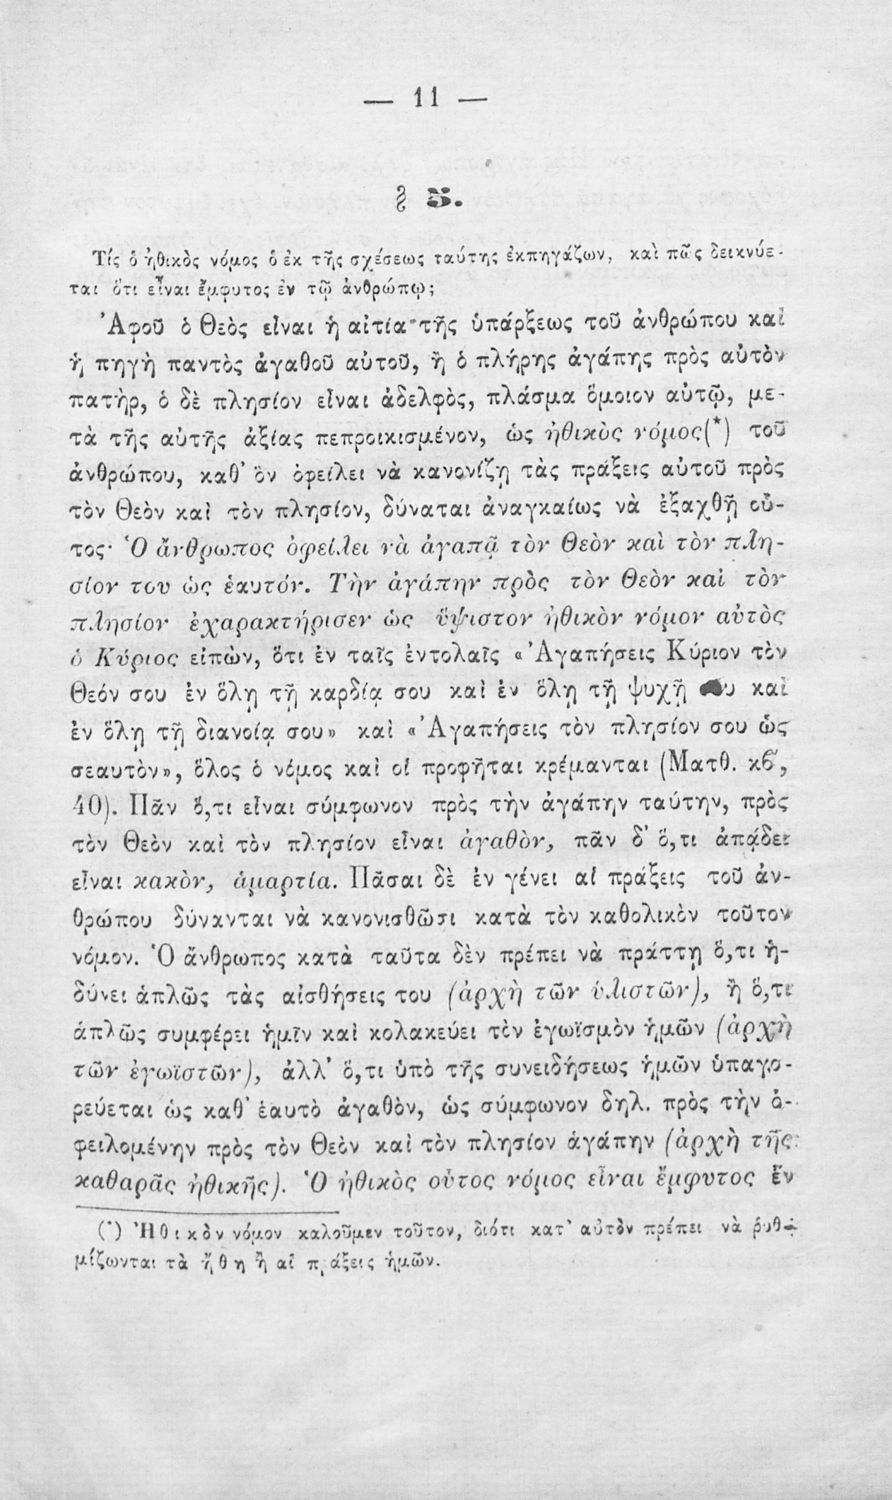 — 11 —
§ 5.
Τίς ὁ ἠθικὸς νόμος ὁ ἐκ τῆς σχέσεως ταύτης ἐκπηγάζων, καὶ πῶς δεικνύε-
ται ὅτι εἶναι ἔμφυτος ἐν τῷ ἀνθρώπῳ;
Ἀφοῦ ὁ Θεὸς εἶναι ἡ αἰτία τῆς ὑπάρξεως τοῦ ἀνθρώπου καὶ
ἡ πηγὴ παντὸς ἀγαθοῦ αὐτοῦ, ἢ ὁ πλήρης ἀγάπης πρὸς αὐτὸν
πατὴρ, ὁ δὲ πλησίον εἶναι ἀδελφὸς, πλάσμα ὅμοιον αὐτῷ, με-
τὰ τῆς αὐτῆς ἀξίας πεπροικισμένον, ὡς ἠθικὸς νόμος(*) τοῦ
ἀνθρώπου, καθ' ὃν ὀφείλει νὰ κανονίζῃ τὰς πράξεις αὐτοῦ πρὸς
τὸν Θεὸν καὶ τὸν πλησίον, δύναται ἀναγκαίως νὰ ἐξαχθῇ οὗ-
τος· Ὁ ἄνθρωπος ὀφείλει νὰ ἀγαπᾷ τὸν Θεὸν καὶ τὸν πλη-
σίον του ὡς ἑαυτόν. Τὴν ἀγάπην πρὸς τὸν Θεὸν καὶ τὸν
πλησίον ἐχαρακτήρισεν ὡς ὕψιστον ἠθικὸν νόμον αὐτὸς
ὁ Κύριος εἰπὼν, ὅτι ἐν ταῖς ἐντολαῖς «Ἀγαπήσεις Κύριον τὸν
Θεόν σου ἐν ὅλῃ τῇ καρδίᾳ σου καὶ ἐν ὅλῃ τῇ ψυχῇ σου καὶ
ἐν ὅλῃ τῇ διανοίᾳ σου» καὶ «Ἀγαπήσεις τὸν πλησίον σου ὡς
σεαυτὸν», ὅλος ὁ νόμος καὶ οἱ προφῆται κρέμανται (Ματθ. κϐ′,
40). Πᾶν ὅ,τι εἶναι σύμφωνον πρὸς τὴν ἀγάπην ταύτην, πρὸς
τὸν Θεὸν καὶ τὸν πλησίον εἶναι ἀγαθὸν, πᾶν δ' ὅ,τι ἀπᾴδει
εἶναι κακὸν, ἁμαρτία. Πᾶσαι δὲ ἐν γένει αἱ πράξεις τοῦ ἀν-
θρώπου δύνανται νὰ κανονισθῶσι κατὰ τὸν καθολικὸν τοῦτον
νόμον. Ὁ ἄνθρωπος κατὰ ταῦτα δὲν πρέπει νὰ πράττῃ ὅ,τι ἡ-
δύνει ἁπλῶς τὰς αἰσθήσεις του (ἀρχὴ τῶν ὑλιστῶν), ἢ ὅ,τι
ἁπλῶς συμφέρει ἡμῖν καὶ κολακεύει τὸν ἐγωϊσμὸν ἡμῶν (ἀρχὴ
τῶν ἐγωϊστῶν), ἀλλ' ὅ,τι ὑπὸ τῆς συνειδήσεως ἡμῶν ὑπαγο-
ρεύεται ὡς καθ' ἑαυτὸ ἀγαθὸν, ὡς σύμφωνον δηλ. πρὸς τὴν ὀ-
φειλομένην πρὸς τὸν Θεὸν καὶ τὸν πλησίον ἀγάπην (ἀρχὴ τῆς
καθαρᾶς ἠθικῆς). Ὁ ἠθικὸς οὗτος νόμος εἶναι ἔμφυτος ἐν
(*) Ἠθικὸν νόμον καλοῦμεν τοῦτον, διότι κατ' αὐτὸν πρέπει νὰ ῥυθ-
μίζωνται τὰ ἤθη ἢ αἱ πράξεις ἡμῶν.